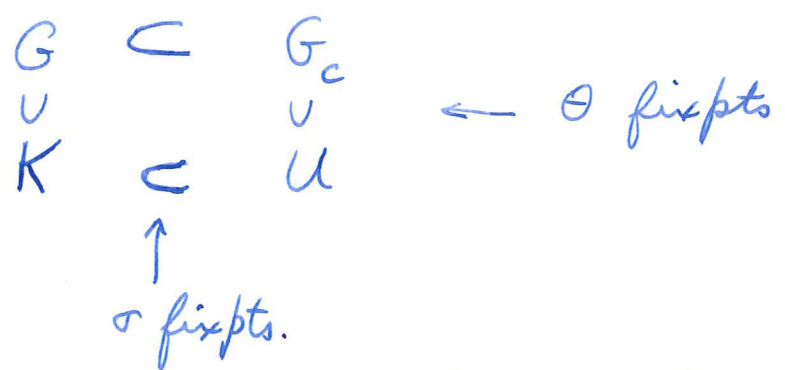 G ⊂ G_c
∪ ∪ ← θ fixpts
K ⊂ U
↑
σ fixpts.